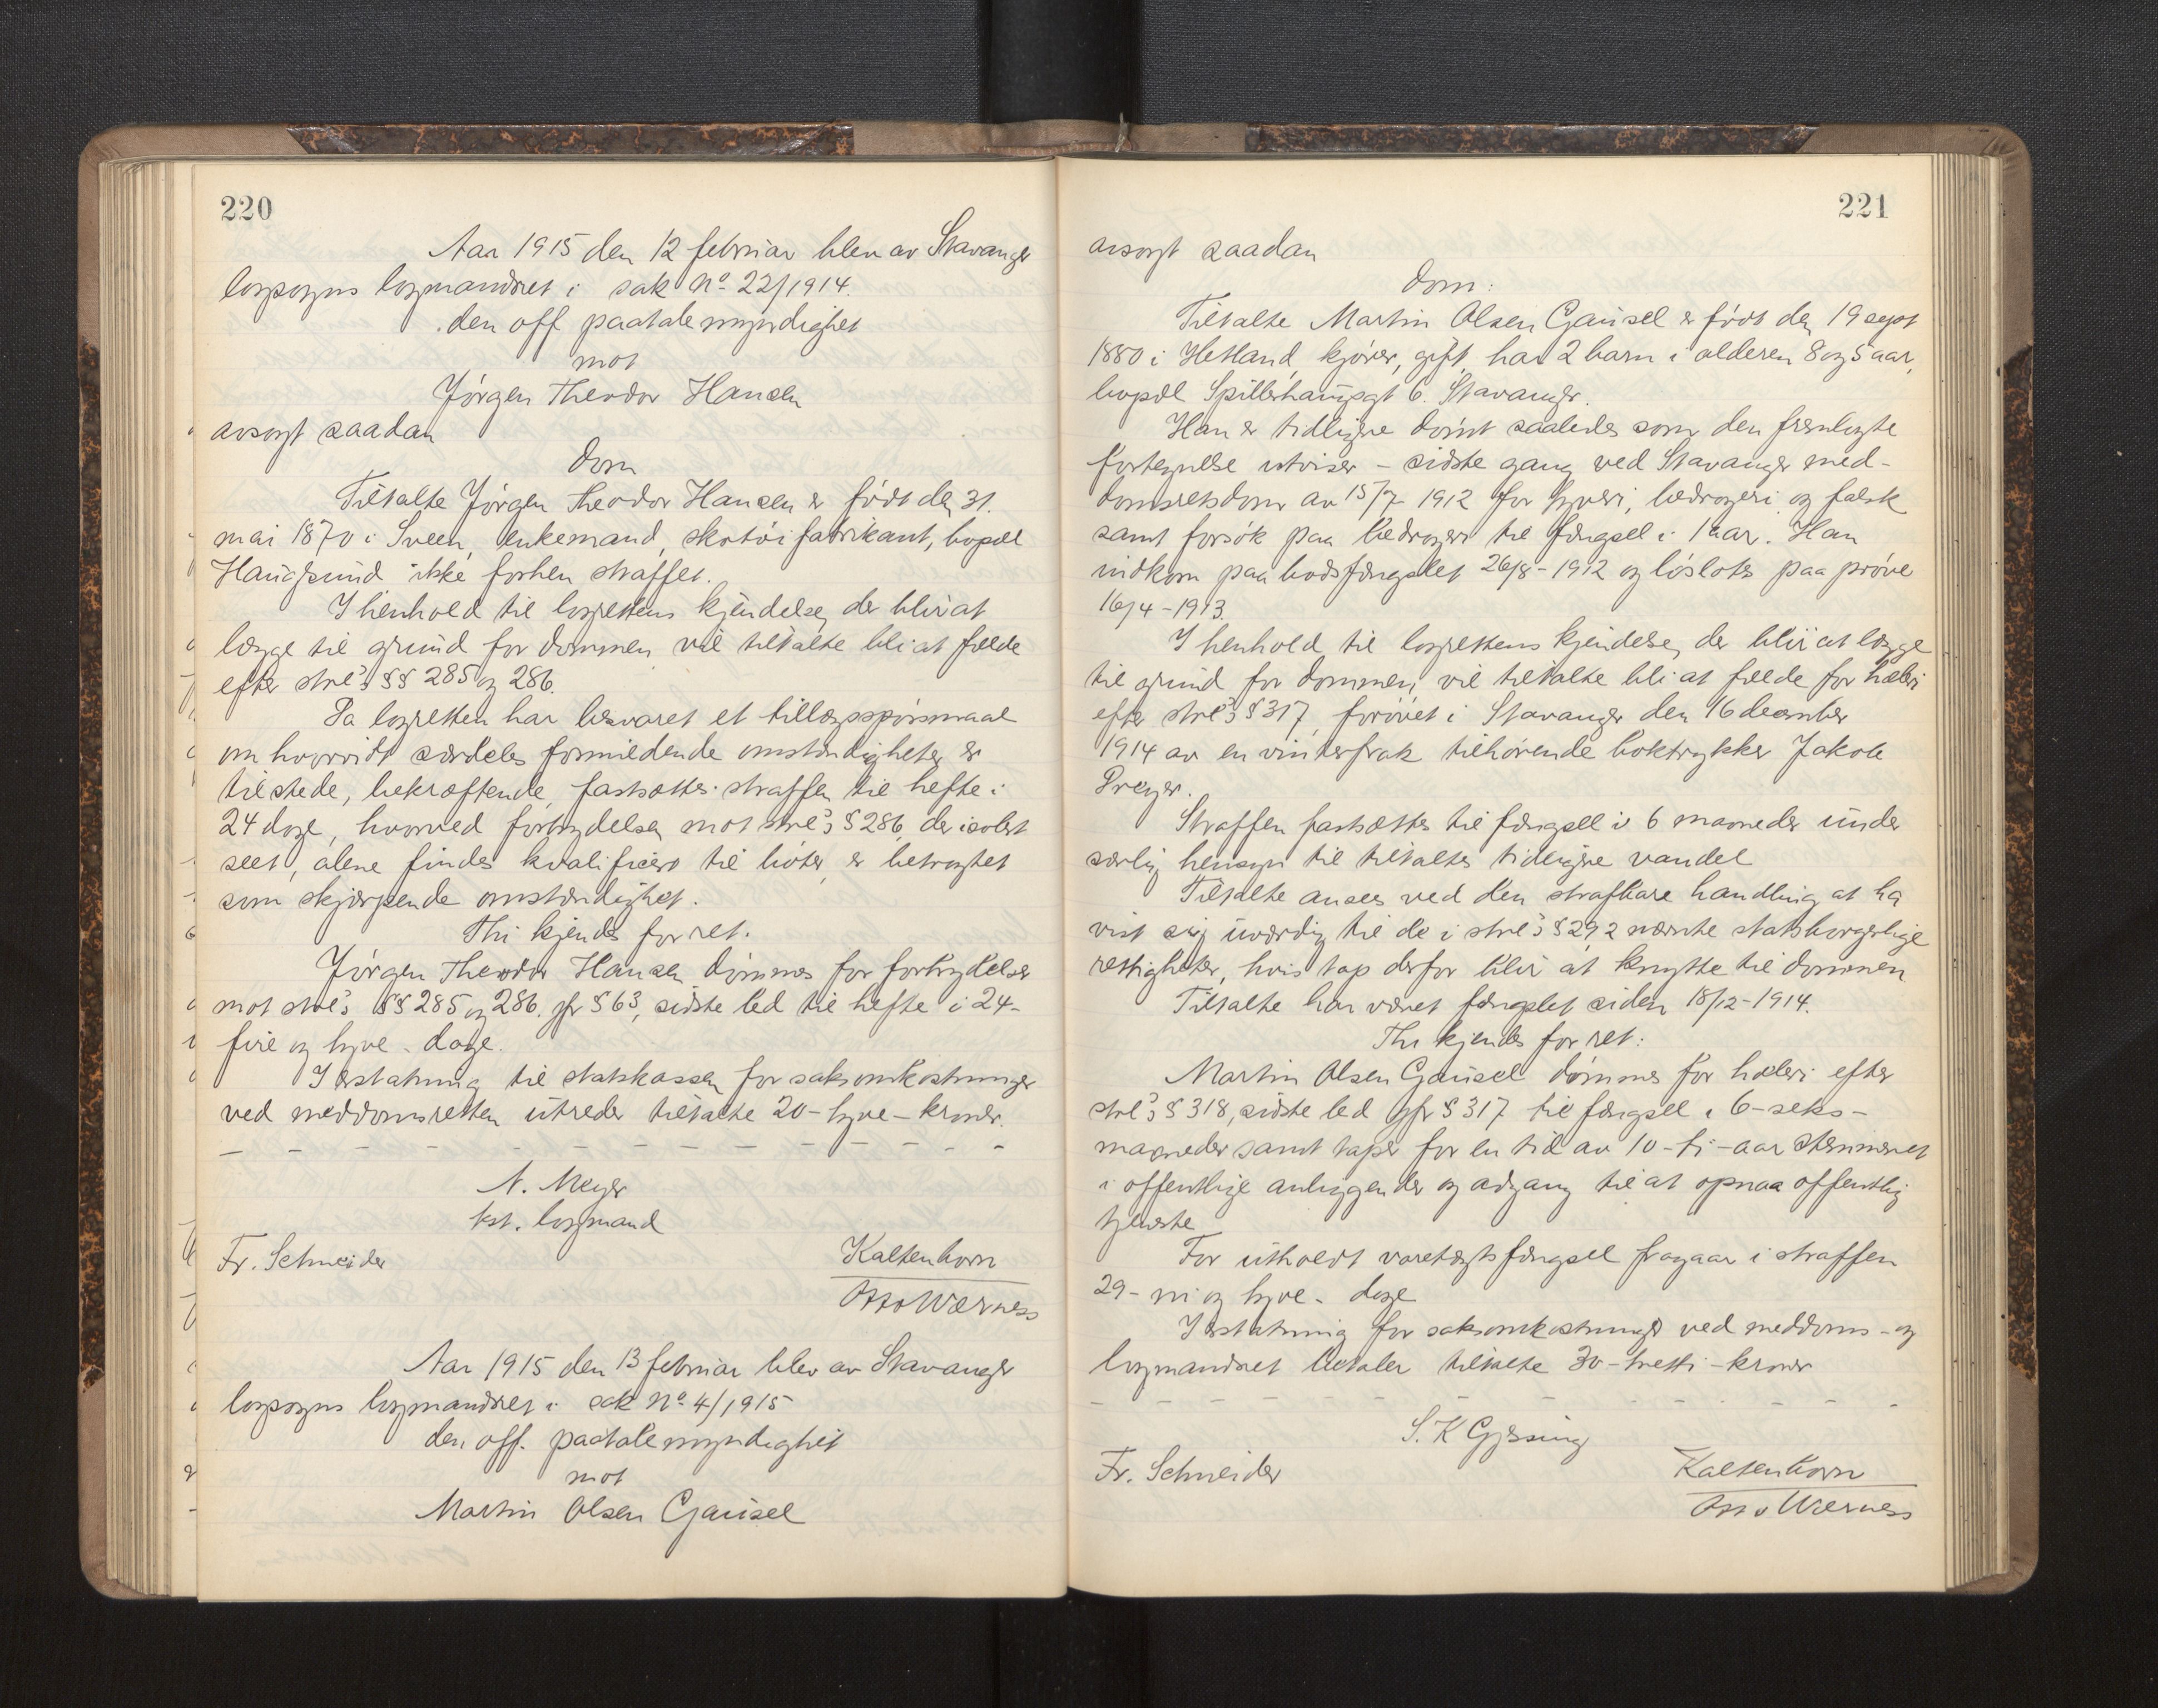 220
Aar 1915 den 12 februar blev av Stavanger
lagsogns lagmandsret i sak No 22/1914.
den off paatalemyndighet
mot
Jörgen Theodor Hansen
avsagt saadan
Dom
Tiltalte Jörgen Theodor Hansen er födt den 31.
mai 1870 i Sveen, enkemand, skotöifabrikant, bopæl
Haugesund ikke forhen straffet.
I henhold til lagrettens kjendelse, der blir at
lægge til grund for dommen vil tiltalte bli at fælde
efter strl's §§ 285 og 286.
Da lagretten har besvaret et tillægsspörsmaal
om hvorvidt særdeles formildende omstændigheter er
tilstede, bekræftende, fastsættes straffen til hefte i
24 dage, hvorved forbrydelsen mot strl's § 286, der isolert
seet, alene findes kvalificert til böter, er betragtet
som skjærpende omstændighet.
Thi kjendes for ret.
Jörgen Theodor Hansen dömmes for forbrydelser
mot strl's §§ 285 og 286. jfr § 63, sidste led til hefte i 24-
fire og tyve - dage.
I erstatning til statskassen for saksomkostninger
ved meddomsretten utreder tiltalte 20 - tyve - kroner.
N. Meyer
kst. lagmand
Fr. Schneider Kaltenborn
Otto Wærness
Aar 1915 den 13 februar blev av Stavanger
lagsogns lagmandsret i sak No 4/1915
den off. paatalemyndighet
mot
Martin Olsen Gausel
221
avsagt saadan
Dom:
Tiltalte Martin Olsen Gausel er födt den 19 sept
1880 i Hetland, kjörer, gift, har 2 barn i alderen 8 og 5 aar,
bopæl Spilderhaugsgt 6. Stavanger.
Han er tidligere dömt saaledes som den fremlagte
fortegnelse utviser - sidste gang ved Stavanger med-
domsretsdom av 15/7 1912 for tyveri, bedrageri og falsk
samt forsök paa bedrageri til fængsel i 1 aar. Han
indkom paa bodsfængslet 26/8 - 1912 og löslotes paa pröve
16/4 - 1913.
I henhold til lagrettens kjendelse, der blir at lægge
til grund for dommen, vil tiltalte bli at fælde for hæleri
efter strl's § 317, forövet i Stavanger den 16 december
1914 av en vinterfrak tilhörende boktrykker Jakob
Dreyer.
Straffen fastsættes til fængsel i 6 maaneder under
særlig hensyn til tiltaltes tidligere vandel
Tiltalte anses ved den strafbare handling at ha
vist sig uværdig til de i strl's § 29, 2 nævnte statsborgerlige
rettigheter, hvis tap derfor blir at knytte til dommen
Tiltalte har været fængslet siden 18/12 - 1914.
Thi kjendes for ret:
Martin Olsen Gausel dömmes for hæleri efter
strl's § 318, sidste led jfr § 317 til fængsel i 6 - seks -
maaneder samt taper for en tid av 10 - ti - aar stemmeret
i offentlige anliggender og adgang til at opnaa offentlig
tjeneste
For utholdt varetægtsfængsel fragaar i straffen
29 - ni og tyve - dage
I erstatning for saksomkostninger ved meddoms- og
lagmandsret betaler tiltalte 30 - tretti - kroner
S. K Gjessing
Fr. Schneider Kaltenborn
Otto Wærness